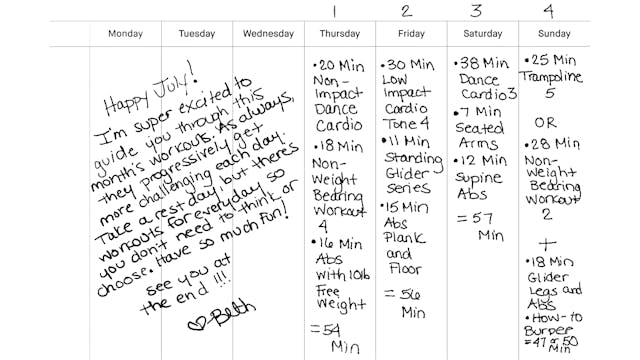 1 2 3 4
Monday Tuesday Wednesday Thursday Friday Saturday Sunday
Happy July!
I'm super excited to
guide you through this
month's workouts. As always,
they progressively get
more challenging each day.
Take a rest day, but there's
workouts for everyday so
you don't need to think or
choose. Have so much fun!
see you at
the end!!!
♡-Beth
•20 Min
Non-
Impact
Dance
Cardio
•18 Min
Non-
Weight
Bearing
Workout
4
•16 Min
Abs
with 10lb
Free
Weight
=54
Min
•30 Min
Low
Impact
Cardio
Tone 4
•11 Min
Standing
Glider
Series
•15 Min
Abs
Plank
and
Floor
=56
Min
•38 Min
Dance
Cardio 3
•7 Min
Seated
Arms
•12 Min
Supine
Abs
=57
Min
•25 Min
Trampoline
5
OR
•28 Min
Non-
Weight
Bearing
Workout
2
+
•18 Min
Glider
Legs and
Abs
•How-to
Burpee
=47 or 50
Min